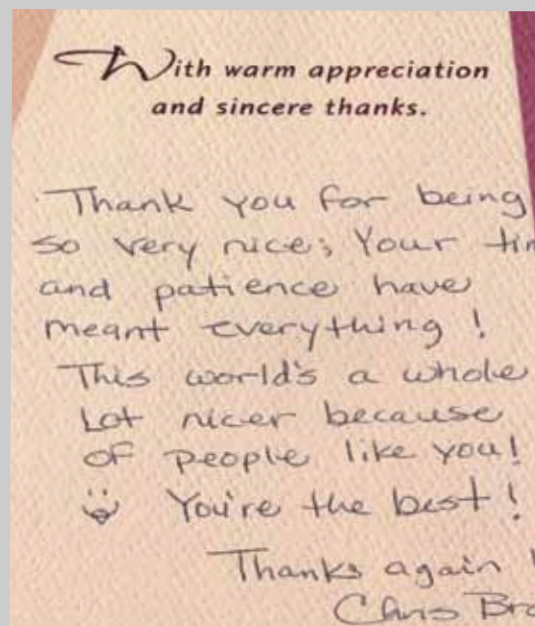 With warm appreciation
and sincere thanks.
Thank you for being
so very nice; Your
and patience have
meant everything!
This world's a whole
Lot nicer because
of people like you!
You're the best!
Thanks again
Chris